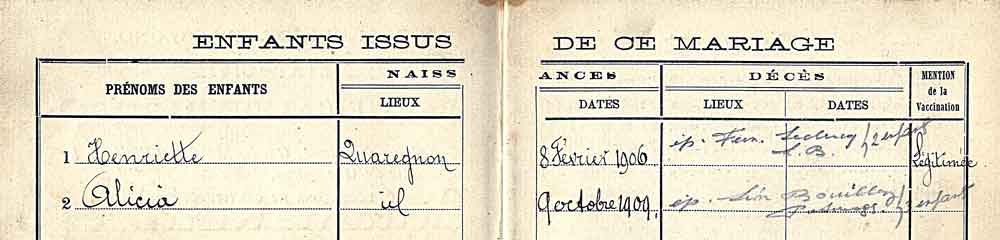 ENFANTS ISSUS DE CE MARIAGE
PRÉNOMS DES ENFANTS NAISSANCES DÉCÈS MENTION de la Vaccination
LIEUX DATES LIEUX DATES
1 Henriette Quaregnon 8 Février 1906 ép. Fern. Leclercq / 2 enfants Légitimée
L. B.
2 Alicia id 9 octobre 1909. ép. Léon Bouillon / enfant